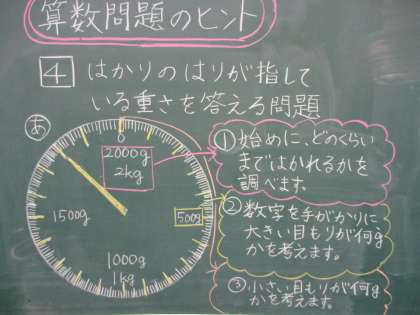 算数問題のヒント
4 はかりのはりが指して
いる重さを答える問題
あ
0
2000g
2kg
1500g
500g
1000g
1kg
① 始めに、どのくらい
まではかれるかを
調べます。
② 数字を手がかりに
大きい目もりが何g
かを考えます。
③ 小さい目もりが何g
かを考えます。